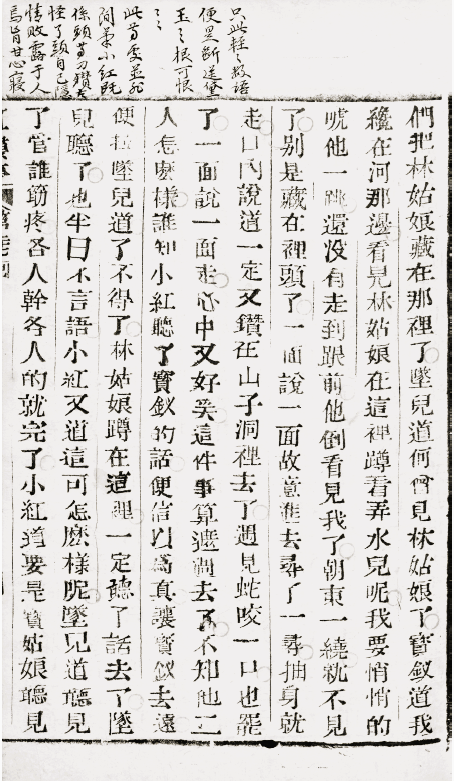 只此輕〻数語
便是斷送黛
玉之根可恨
〻〻
此等處並非
閒筆小红既
係頭等刁鑽古
怪丫頭自己隱
情敗露于人
焉肯甘心寢
們把林姑娘藏在那裡了墜兒道何曾見林姑娘了寶釵道我
纔在河那邊看見林姑娘在這裡蹲着弄水兒呢我要悄悄的
唬他一跳還沒有走到跟前他倒看見我了朝東一繞就不見
了別是藏在裡頭了一面說一面故意進去尋了一尋抽身就
走口內說道一定又鑽在山子洞裡去了遇見蛇咬一口也罷
了一面說一面走心中又好笑這件事算遮過去了不知他二
人怎麽樣誰知小紅聽了寶釵的話便信以爲真讓寶釵去遠
便拉墜兒道了不得了林姑娘蹲在這裡一定聽了話去了墜
兒聽了也半日不言語小紅又道這可怎麽樣呢墜兒道聽見
了管誰筋疼各人幹各人的就完了小紅道要是寶姑娘聽見